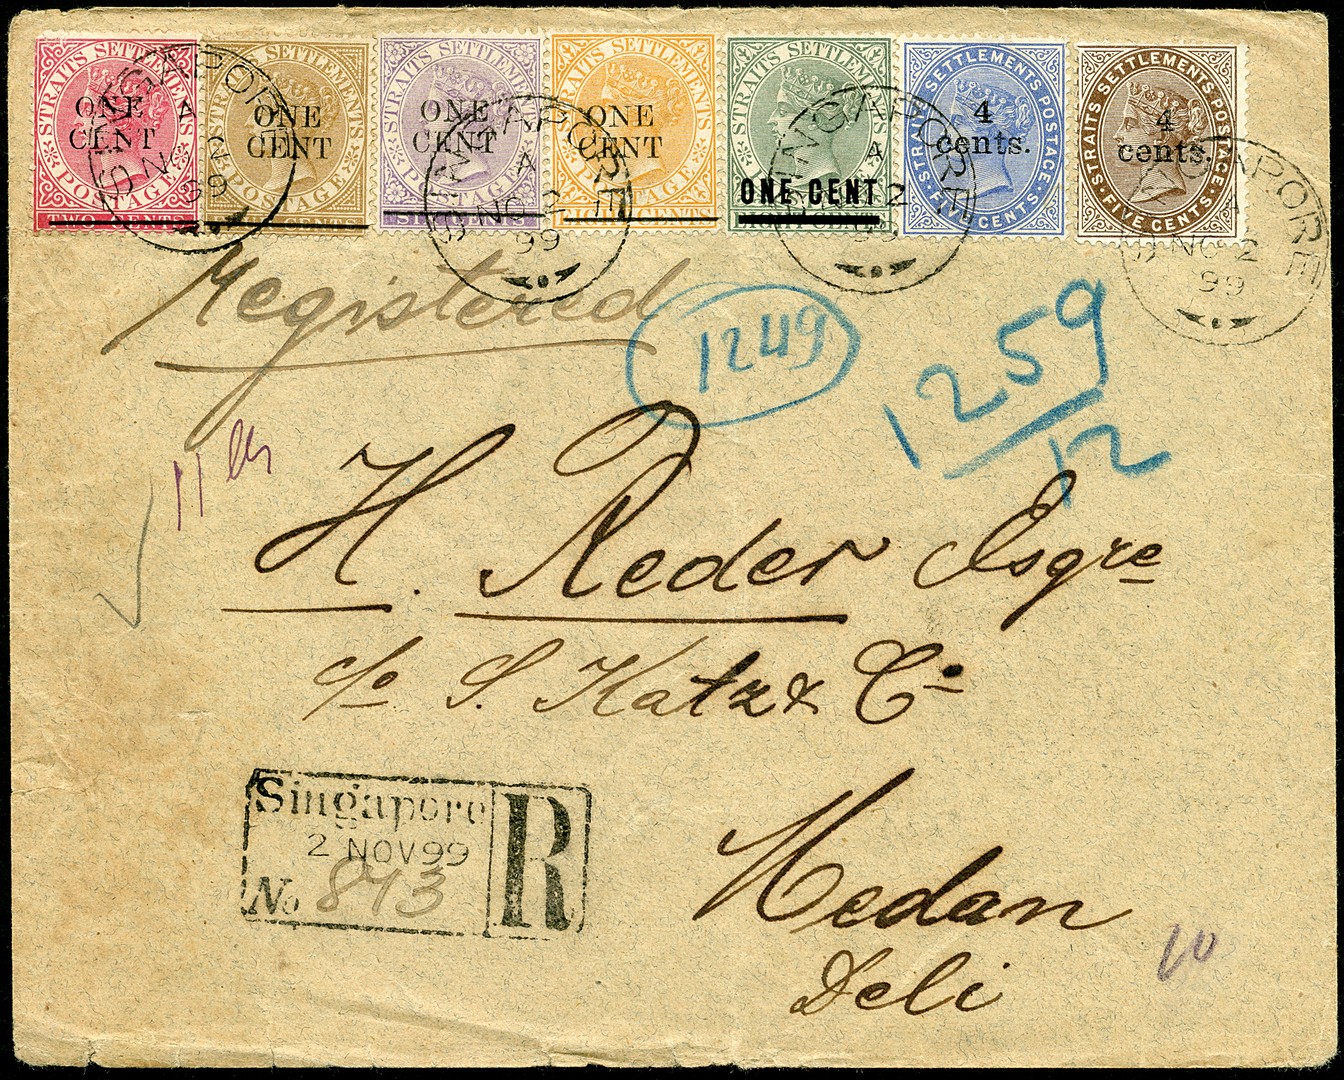 STRAITS SETTLEMENTS
ONE
CENT
POSTAGE
TWO CENTS
STRAITS SETTLEMENTS
ONE
CENT
POSTAGE
STRAITS SETTLEMENTS
ONE
CENT
POSTAGE
SIX CENTS
STRAITS SETTLEMENTS
ONE
CENT
POSTAGE
EIGHT CENTS
STRAITS SETTLEMENTS
ONE CENT
EIGHT CENTS
STRAITS SETTLEMENTS POSTAGE
4
cents.
FIVE CENTS
STRAITS SETTLEMENTS POSTAGE
4
cents.
FIVE CENTS
SINGAPORE
A
NO 2
99
SINGAPORE
A
NO 2
99
SINGAPORE
A
2
99
SINGAPORE
A
NO 2
99
Registered
1249
1259
12
H. Reder Esqre
c/o S. Katz & Co
Singapore
2 NOV 99
No 873
R
Medan
Deli